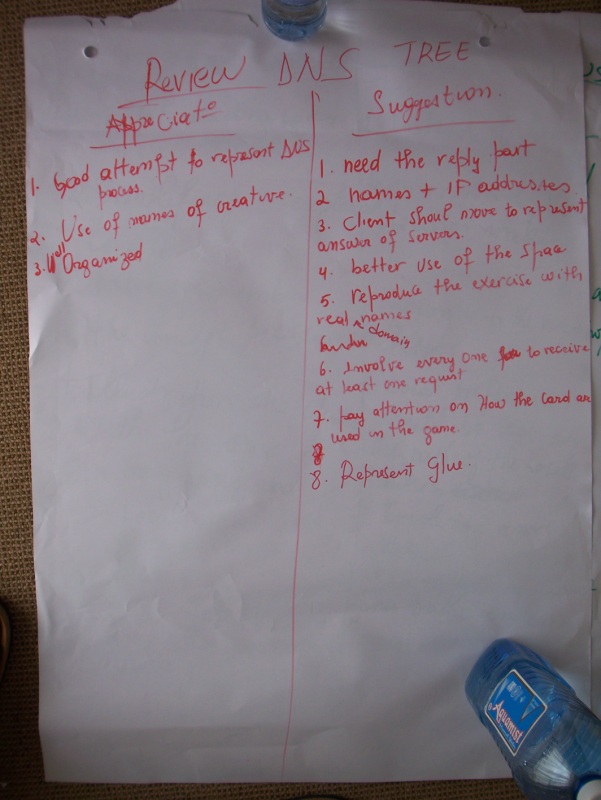 Review DNS TREE
Appreciate
1. Good attempt to represent DNS
process.
2. Use of names of creative.
3. Well Organized
Suggestion.
1. need the reply part
2 names + IP addresses.
3. Client shoul move to represent
answer of servers.
4. better use of the space
5. reproduce the exercise with
real names
domain
6. Involve every one to receive
at least one request
7. pay attention on How the card are
used in the game.
8
8. Represent Glue.
Aquamist